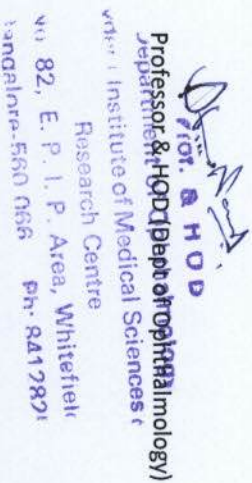 Prof. & HOD
Professor & HOD (Dept of Ophthalmology)
Institute of Medical Sciences
Research Centre
82, E. P. I. P. Area, Whitefiel
Bangalore-560 066 Ph: 841282